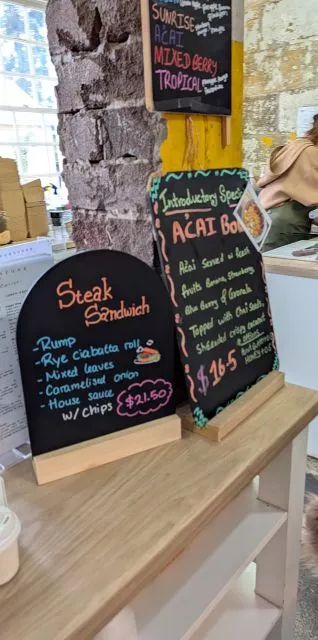 SUNRISE
AÇAI
MIXED BERRY
TROPICAL
Introductory Spec
AÇAI BO
Açai Served w/ fresh
fruits Banana, Strawberry
Blue Berry & Granola
Topped with Chai Seeds,
shredded crispy coconut
$16.5
Steak
Sandwich
- Rump
- Rye ciabatta roll
- Mixed leaves
- Caramelised onion
- House sauce
w/ Chips $21.50